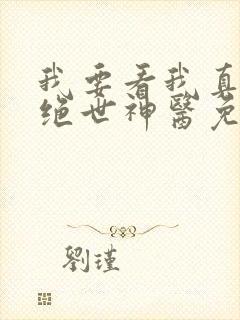 我要看我真
绝世神醫免
劉瑾